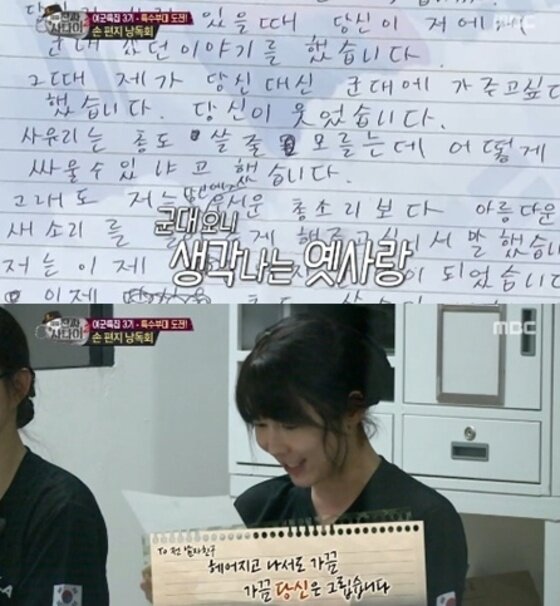 진짜 사나이
여군특집 3기 - 특수부대 도전!
손 편지 낭독회
MBC
있을때 당신이 저에게
군대 갔던 이야기를 했습니다.
그때 제가 당신대신 군대에 가주고싶다
했습니다. 당신이 웃었습니다.
사유리는 총도 쏠 줄 모르는데 어떻게
싸울수 있냐고 했습니다.
그래도 저는 무서운 총소리보다 아름다운
새소리를 해주고싶어서 말했습니
저는 이제 이 되었습니다
이제 총도
군대 오니
생각나는 옛사랑
진짜 사나이
여군특집 3기 - 특수부대 도전!
손 편지 낭독회
MBC
To 전 남자친구
헤어지고 나서도 가끔
가끔 당신은 그립습니다